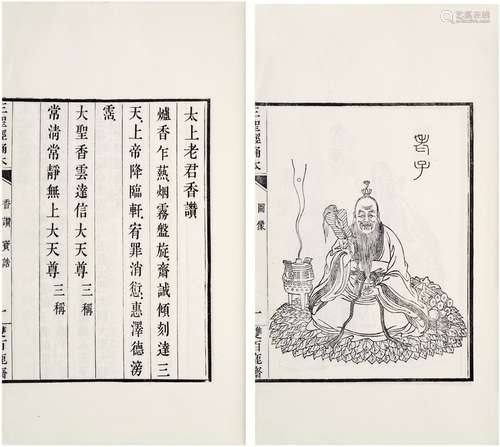 老子
三聖經誦本
圖像
一
雙百鹿齋
太上老君香讚
爐香乍爇、烟霧盤旋、齋誠傾刻達三
天、上帝降臨軒、宥罪消愆、惠澤德滂
霑、
大聖香雲達信大天尊 三稱
常清常靜無上大天尊 三稱
三聖經誦本
香讚 寶誥
一
雙百鹿齋